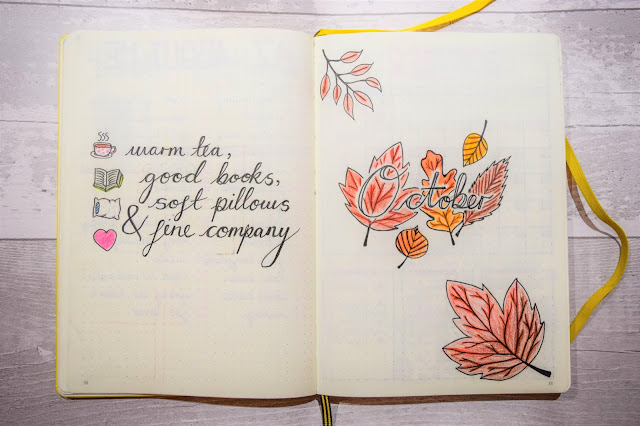 warm tea,
good books,
soft pillows
& fine company
October